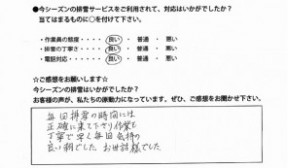 ●今シーズンの排雪サービスをご利用されて、対応はいかがでしたか？
当てはまるものに○を付けて下さい。
・作業員の態度・・・・・良い・普通・悪い
・排雪の丁寧さ・・・・・良い・普通・悪い
・電話対応・・・・・・・良い・普通・悪い
☆ご感想をお願いします☆
今シーズンの排雪はいかがでしたか？
お客様の声が、私たちの原動力になっています。ぜひ、ご感想をお聞かせ下さい。
毎回排雪の時間には
正確に来て下さり作業も
丁寧で早く毎回気持の
良い朝でした お世話様でした